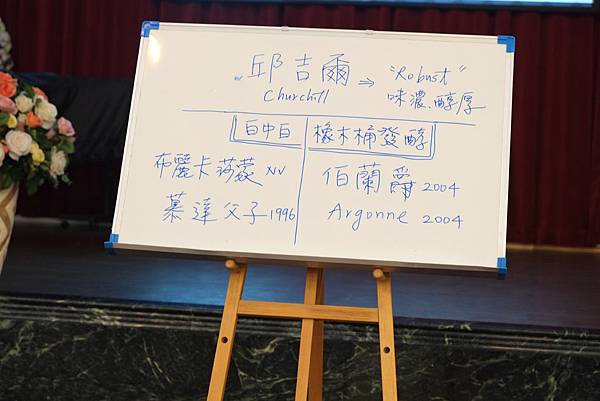 邱吉爾 ⇒ "Robust"
Churchill 味濃、醇厚
白中白 橡木桶發酵
布麗卡莎蒙 NV 伯蘭爵 2004
慕達父子 1996 Argonne 2004